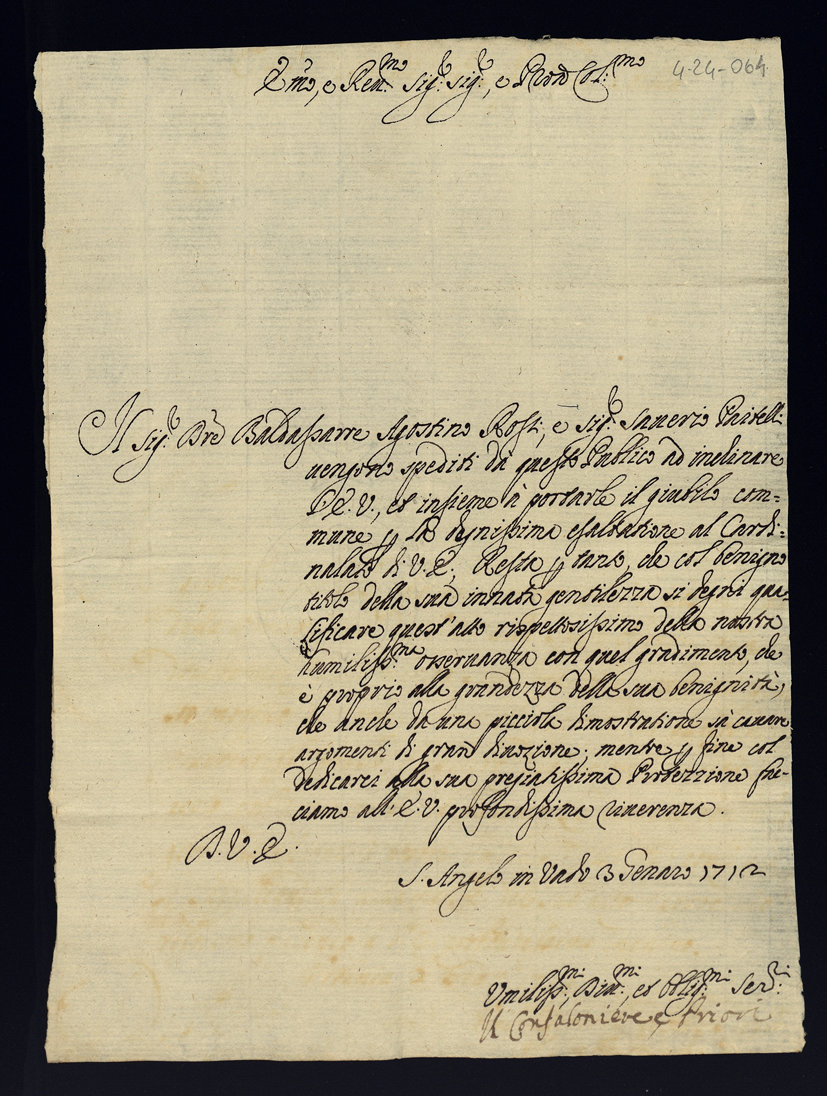 4-24-064
Emo, e Revmo Sigr: Sigr:, e Pron Colmo
Il Sigr: Dre Baldassarre Agostino Rosi:, e Sigr: Saverio
uengono spediti da questo Publico ad inclinare
l'E. V., et insieme à portarle il giubilo com=
mune p la dignissima esaltatione al Cardi=
nalato di V. E., Resta p tanto, che col benigno
titolo della sua innata gentilezza si degni qua=
lificare quest'atto rispettosissimo della nostra
humilissma osseruanza con quel gradimento, che
è proprio alla grandezza della sua benignità,
che anche da una picciola dimostratione sà cauare
argomenti di gran diuozione; mentre p fine col
dedicarci alla sua pregiatissima Protezzione fac=
ciamo all'E. V. profondissima riuerenza.
D. V. E.
S. Angelo in Vado 3 Genaro 1712
Vmilissmi:, Diumi:, et Obligmi: Seri:
Il Confaloniere e Priori